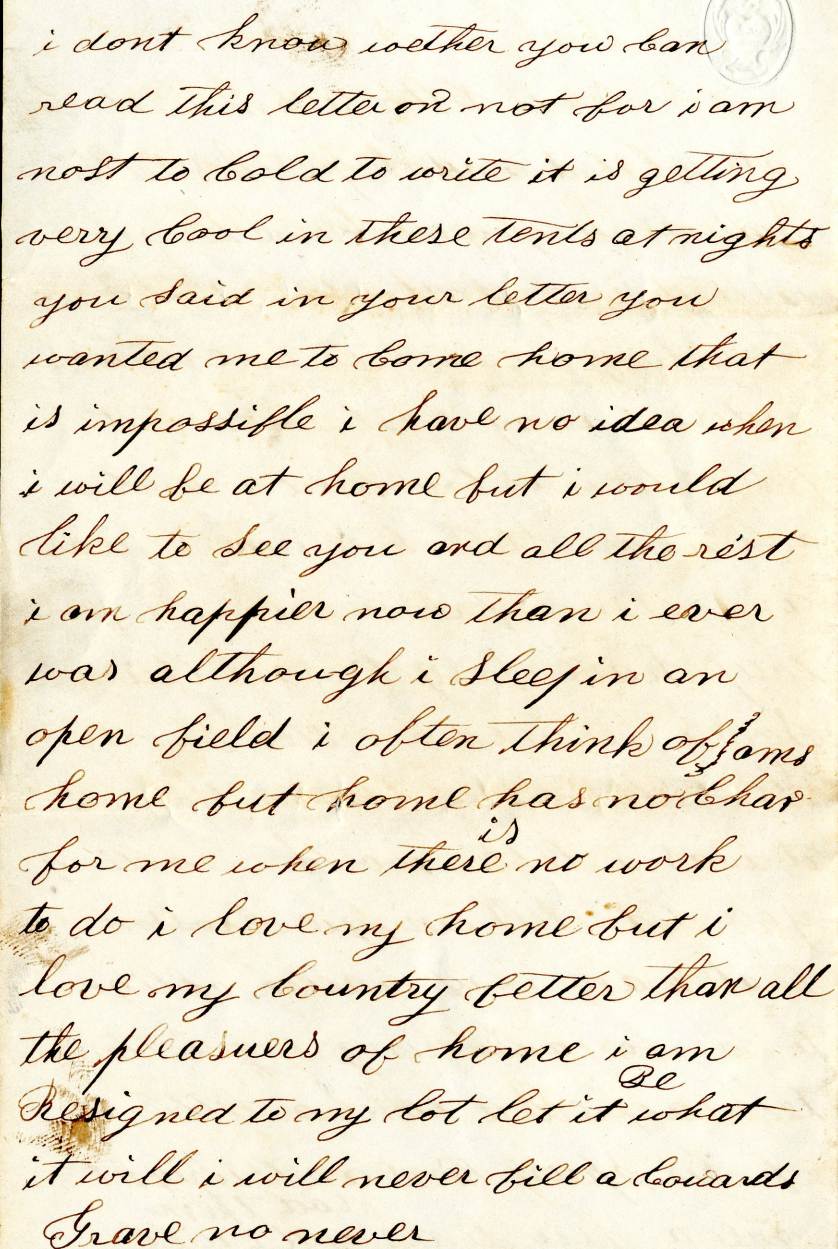 i dont know wether you can
read this letter or not for i am
most to cold to write it is getting
verry cool in these tents at nights
you said in your letter you
wanted me to come home that
is impossible i have no idea when
i will be at home but i would
like to see you and all the rest
i am happier now than i ever
was although i sleep in an
open field i often think of
home but home has no charams
for me when there is no work
to do i love my home but i
love my country better than all
the pleasuers of home i am
Resigned to my lot let it Be what
it will i will never fill a cowards
Grave no never